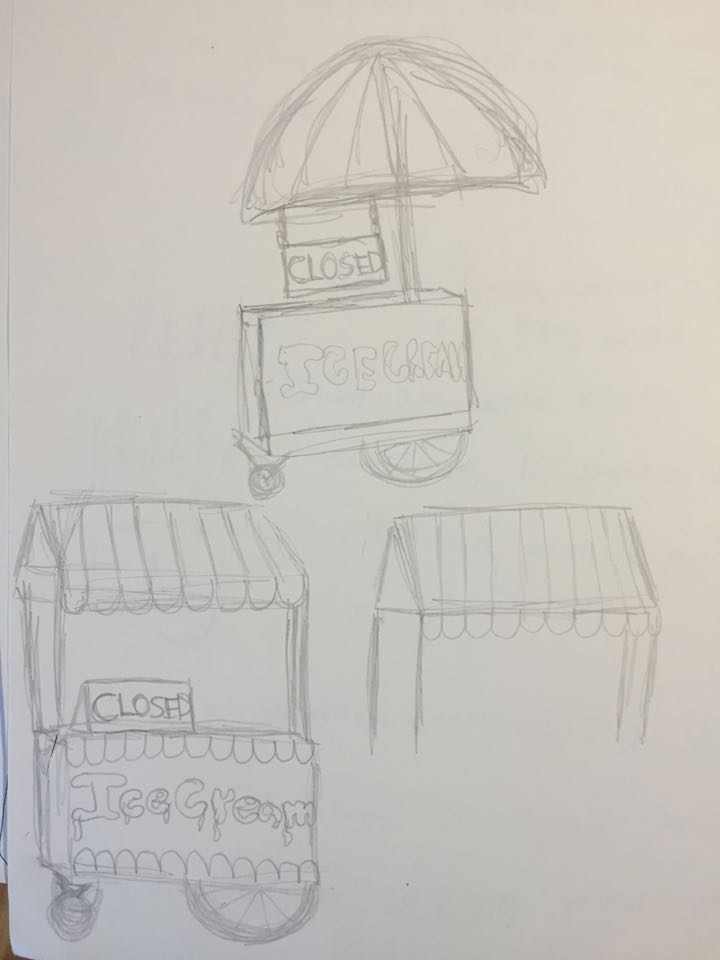 CLOSED
ICE CREAM
CLOSED
Ice Cream